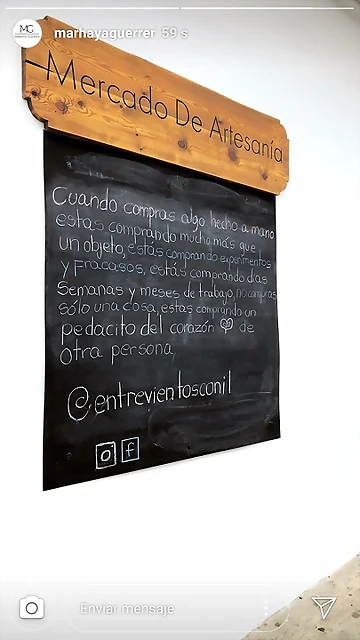 marhayaguerrer 59 s
Mercado De Artesanía
Cuando compras algo hecho a mano
estas comprando mucho más que
un objeto, estás comprando experimentos
y Fracasos, estás comprando días
Semanas y meses de trabajo, no compras
sólo una cosa, estas comprando un
pedacito del corazón de
otra persona
@entrevientosconil
Enviar mensaje